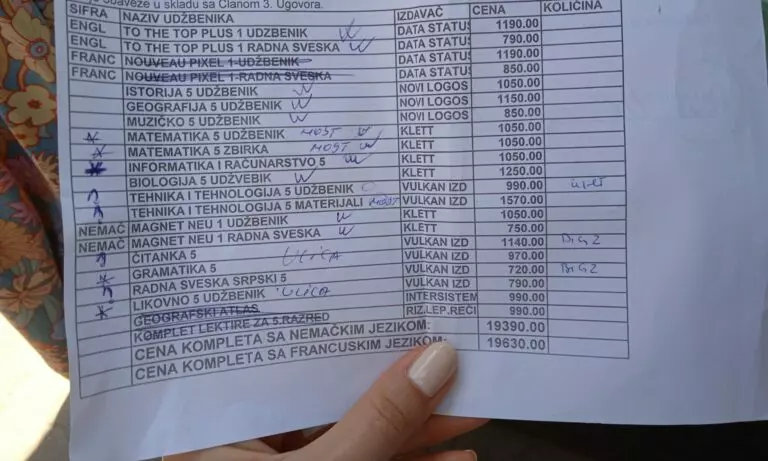 obaveze u skladu sa Članom 3. Ugovora.
ŠIFRA NAZIV UDŽBENIKA IZDAVAČ CENA KOLIČINA
ENGL TO THE TOP PLUS 1 UDZBENIK DATA STATUS 1190.00
ENGL TO THE TOP PLUS 1 RADNA SVESKA DATA STATUS 790.00
FRANC NOUVEAU PIXEL 1-UDŽBENIK DATA STATUS 1190.00
FRANC NOUVEAU PIXEL 1-RADNA SVESKA DATA STATUS 850.00
ISTORIJA 5 UDŽBENIK NOVI LOGOS 1050.00
GEOGRAFIJA 5 UDŽBENIK NOVI LOGOS 1150.00
MUZIČKO 5 UDŽBENIK NOVI LOGOS 850.00
MATEMATIKA 5 UDŽBENIK MOST KLETT 1050.00
MATEMATIKA 5 ZBIRKA MOST KLETT 1050.00
INFORMATIKA I RAČUNARSTVO 5 KLETT 1050.00
BIOLOGIJA 5 UDŽVEBIK KLETT 1250.00
TEHNIKA I TEHNOLOGIJA 5 UDŽBENIK VULKAN IZD 990.00
TEHNIKA I TEHNOLOGIJA 5 MATERIJALI MOST VULKAN IZD 1570.00
NEMAČ MAGNET NEU 1 UDŽBENIK KLETT 1050.00
NEMAČ MAGNET NEU 1 RADNA SVESKA KLETT 750.00
ČITANKA 5 ULICA VULKAN IZD 1140.00 BIGZ
GRAMATIKA 5 VULKAN IZD 970.00
RADNA SVESKA SRPSKI 5 VULKAN IZD 720.00 BIGZ
LIKOVNO 5 UDŽBENIK ULICA VULKAN IZD 790.00
GEOGRAFSKI ATLAS INTERSISTEM 990.00
KOMPLET LEKTIRE ZA 5.RAZRED RIZ.LEP.REČI 990.00
CENA KOMPLETA SA NEMAČKIM JEZIKOM: 19390.00
CENA KOMPLETA SA FRANCUSKIM JEZIKOM: 19630.00